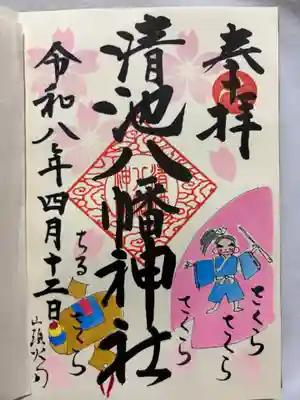 奉拝
清池八幡神社
令和八年四月十二日
さくら
さくら
ちる
さくら
山頭火句